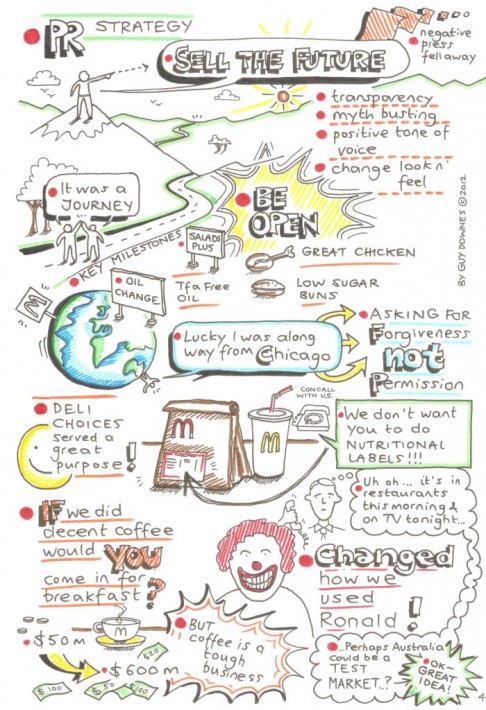 PR STRATEGY
SELL THE FUTURE
negative
press
fell away
transparency
myth busting
positive tone of
voice
change look n'
feel
It was a
JOURNEY
BE
OPEN
BY GUY DOWNES © 2012
KEY MILESTONES
SALADS
PLUS
GREAT CHICKEN
OIL
CHANGE
Tfa Free
OIL
LOW SUGAR
BUNS
M
Lucky I was along
way from Chicago
ASKING FOR
Forgiveness
not
Permission
DELI
CHOICES
served a
great
purpose!
M
M
CONCALL
WITH U.S.
We don't want
you to do
NUTRITIONAL
LABELS!!!
Uh oh... it's in
restaurants
this morning &
on TV tonight...
IF we did
decent coffee
would YOU
come in for
breakfast?
M
Changed
how we
used
Ronald!
BUT
coffee is a
tough
business
$50m
$600m
$20
$100
$50
$100
...Perhaps Australia
could be a
TEST
MARKET..?
OK-
GREAT
IDEA!
4